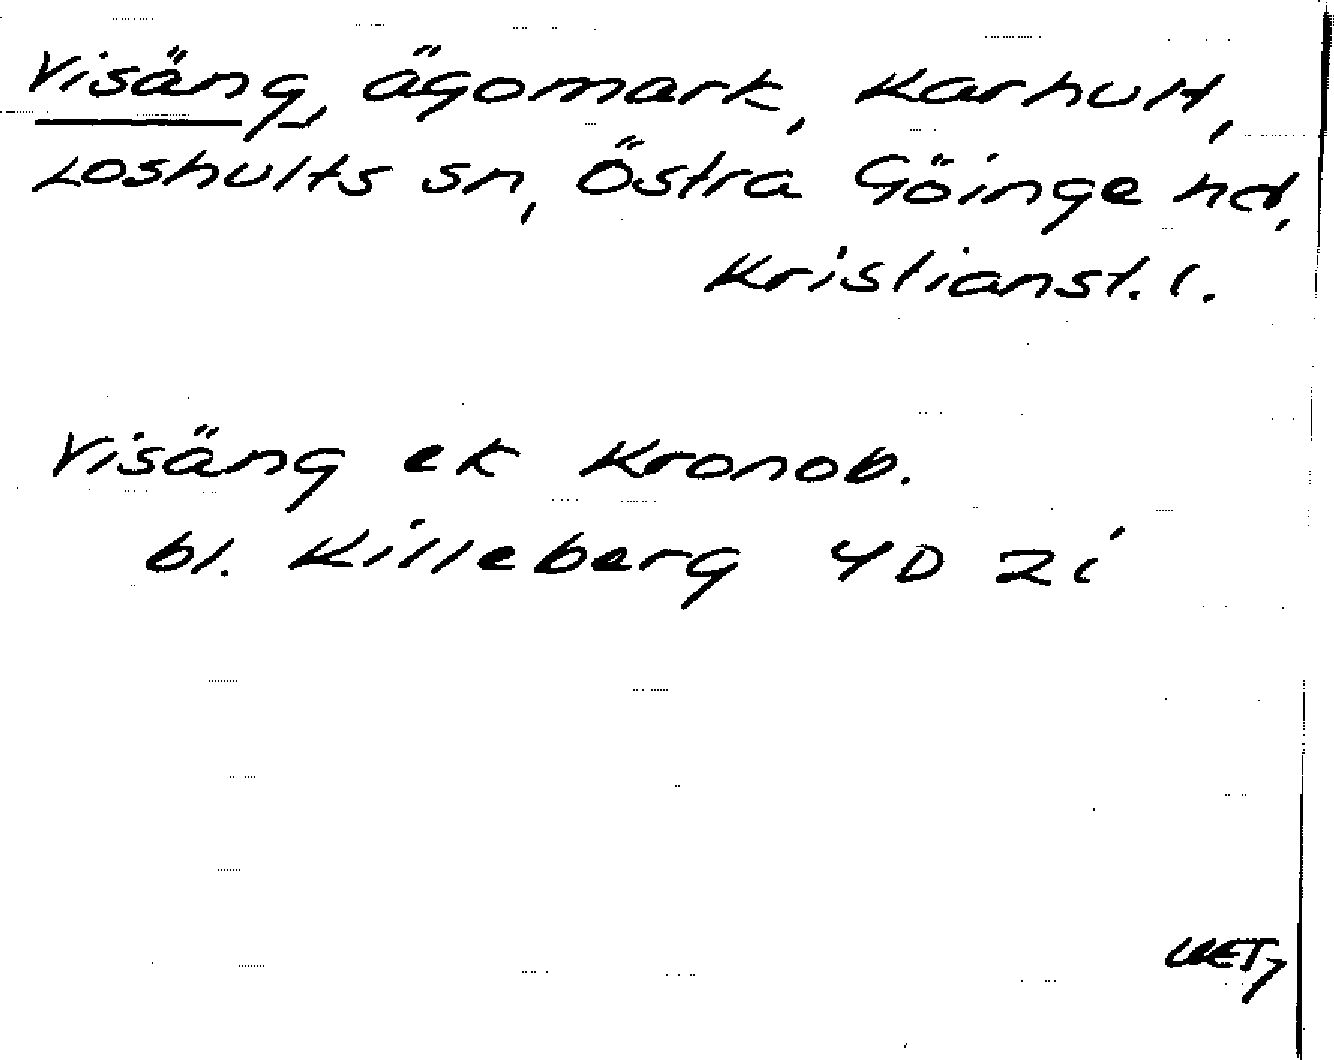 Visäng, ägomark, Karhult,
Loshults sn, Östra Göinge hd,
Kristianst. l.
Visäng ek Kronob.
bl. Killeberg 4D 2i